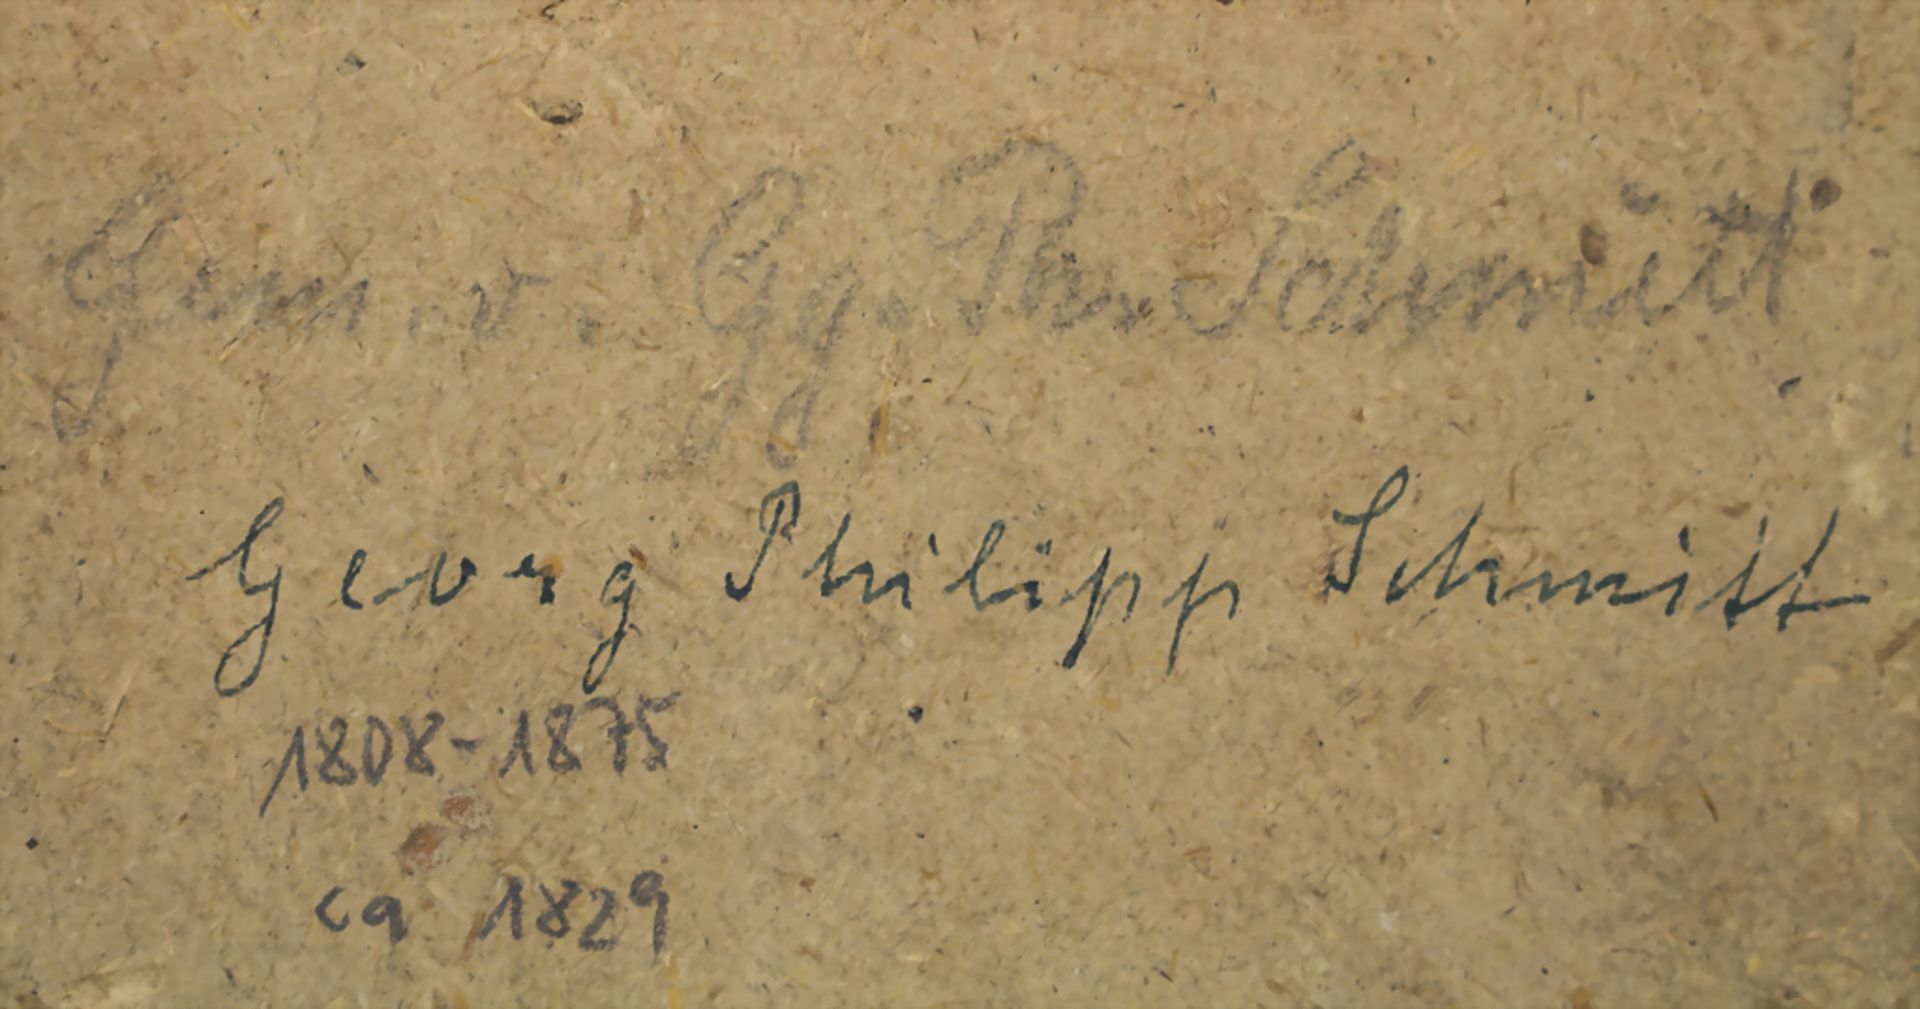 Gem. v. Gg. Ph. Schmitt
Georg Philipp Schmitt
1808-1875
ca 1829